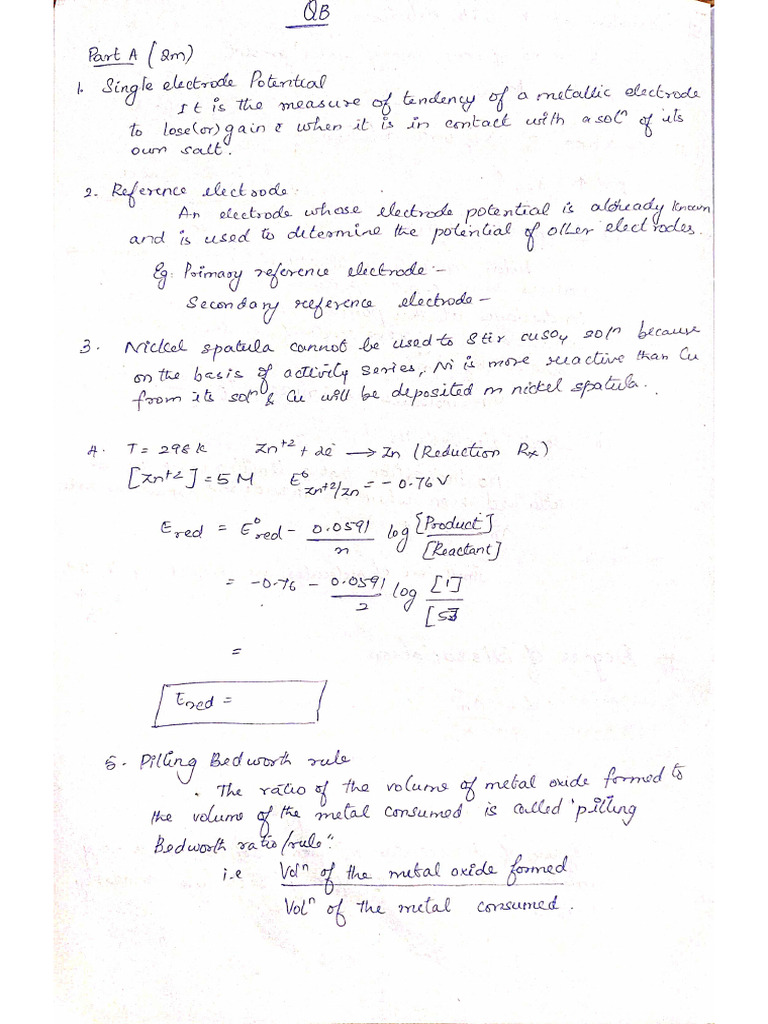 QB
Part A (2m)
1. Single electrode Potential
It is the measure of tendency of a metallic electrode
to lose(or) gain e when it is in contact with a solⁿ of its
own salt.
2. Reference electrode:
An electrode whose electrode potential is already known
and is used to determine the potential of other electrodes.
Eg: Primary reference electrode:-
Secondary reference electrode-
3. Nickel spatula cannot be used to stir CuSO4 solⁿ because
on the basis of activity series, Ni is more reactive than Cu
from its solⁿ & Cu will be deposited on nickel spatula.
4. T = 298 K Zn⁺² + 2e⁻ → Zn (Reduction Rx)
[Zn⁺²] = 5 M E⁰ Zn⁺²/Zn = - 0.76 V
E red = E⁰ red - 0.0591/n log [Product]/[Reactant]
= -0.76 - 0.0591/2 log [1]/[5]
=
E red =
5. Pilling Bedworth rule
. The ratio of the volume of metal oxide formed to
the volume of the metal consumed is called 'pilling
Bedworth ratio/rule'.
i.e Volⁿ of the metal oxide formed
Volⁿ of the metal consumed.